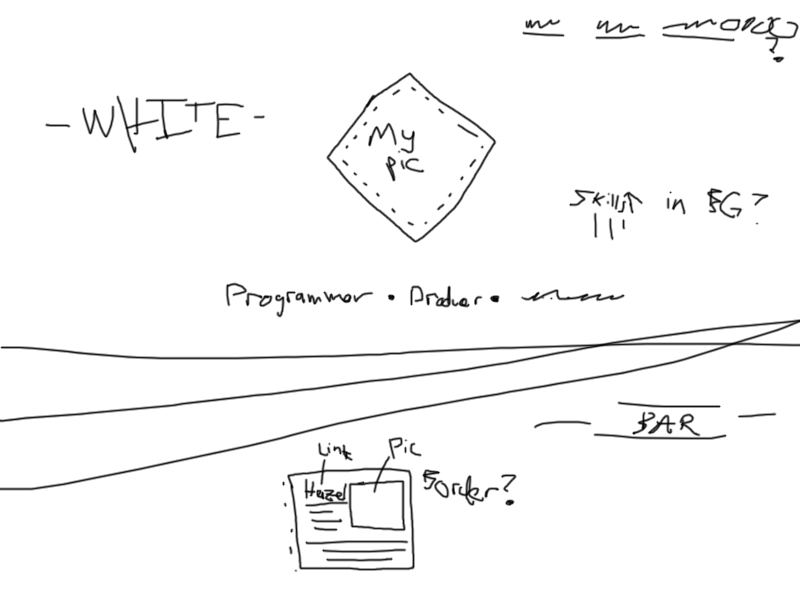 - WHITE -
My
pic
Skills in BG?
Programmer • Producer •
BAR
Link
Pic
Hazel
Border?